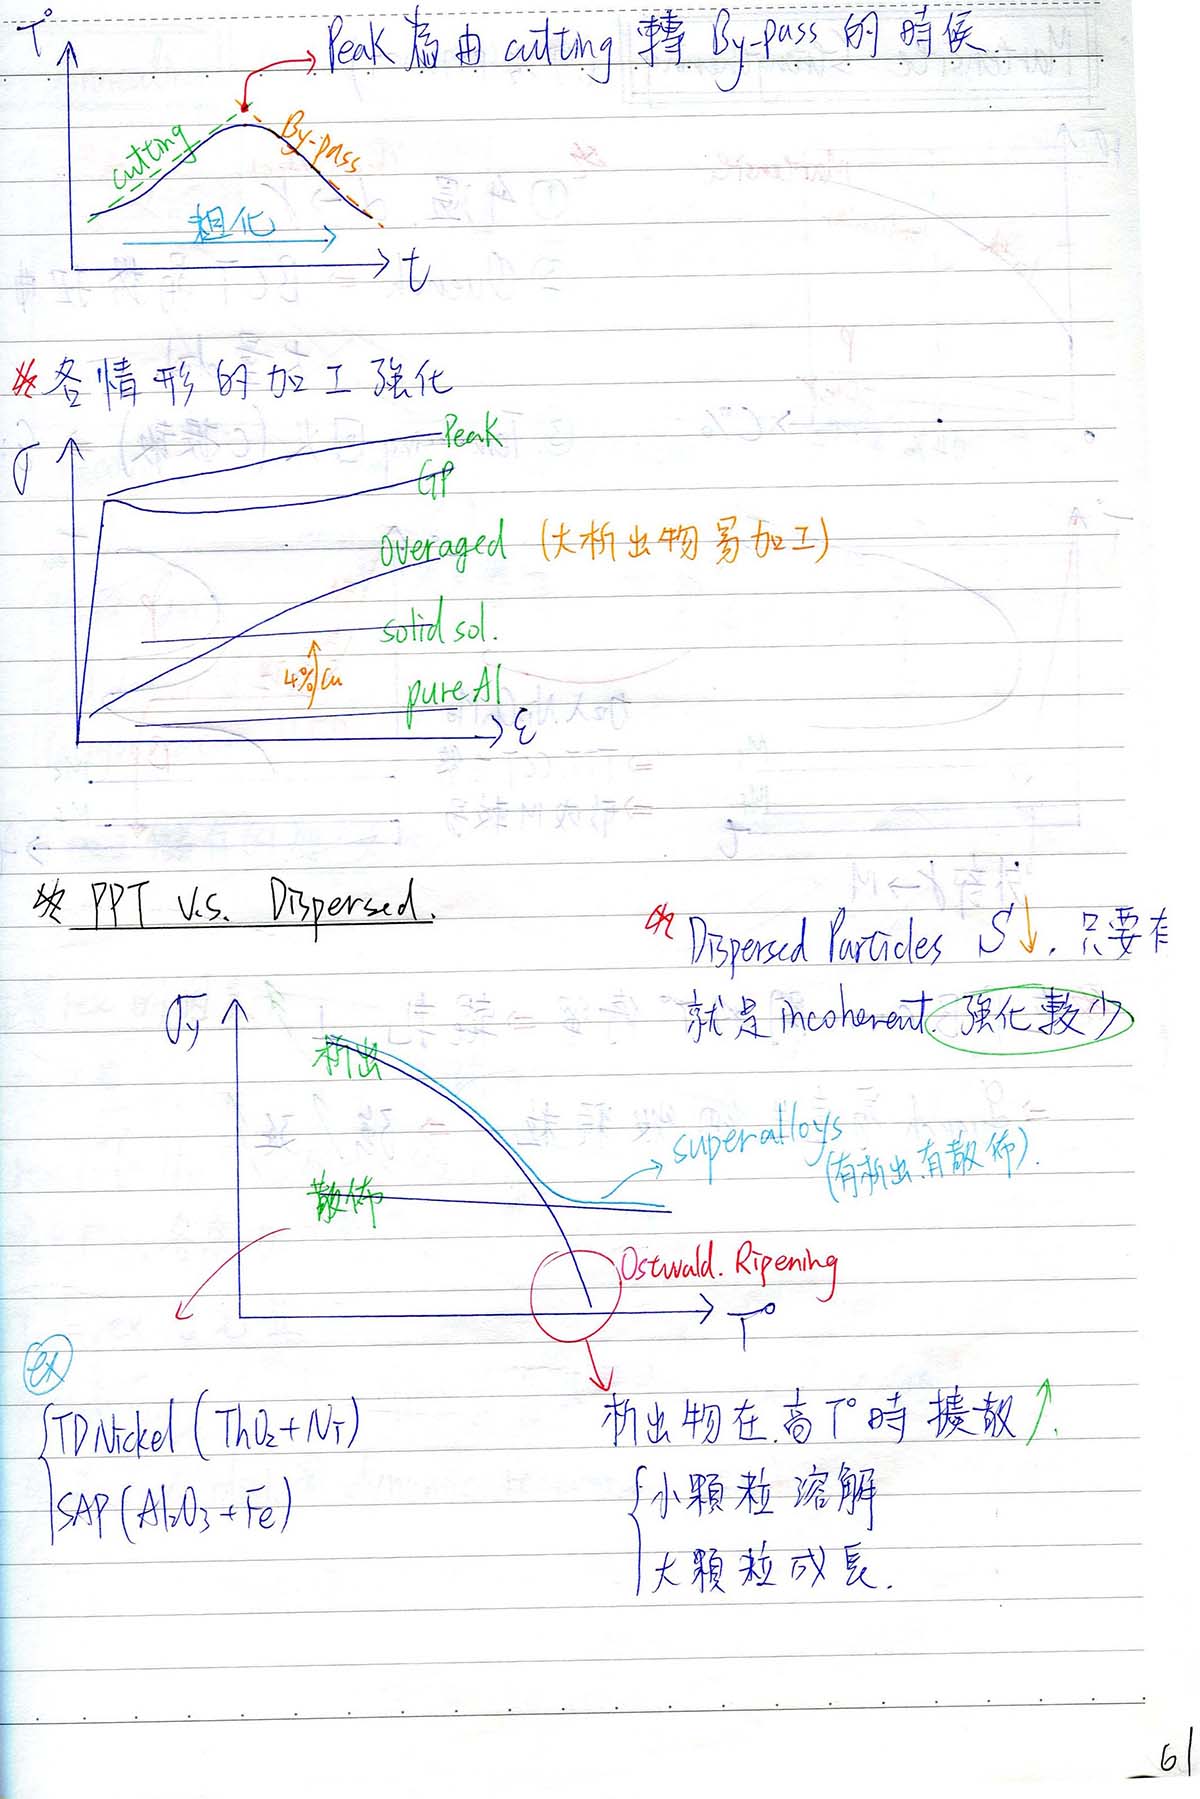 T°
Peak 為由 cutting 轉 By-pass 的時候.
cutting
By-pass
粗化
t
各情形的加工強化
σ
Peak
GP
overaged (大析出物易加工)
solid sol.
4% Cu
pure Al
ε
PPT v.s. Dispersed.
Dispersed Particles S↓. 只要有
就是 incoherent. 強化較少
σy
析出
superalloys
(有析出.有散佈).
散佈
Ostwald. Ripening
T°
ex
TDNickel (ThO₂+Ni)
SAP (Al₂O₃+Fe)
析出物在高T°時擴散↑.
小顆粒溶解
大顆粒成長.
61